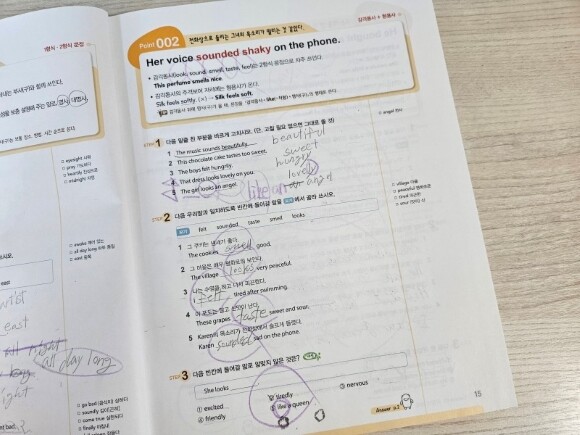 1형식·2형식 문장
wist
east
all right
all day long
□ eyesight 시력
□ midnight 자정
□ awake 깨어 있는
□ all day long 하루 종일
□ east 동쪽
□ go bad (음식이) 상하다
□ soundly (깊이)
□ come true 실현되다
□ finally 마침내
감각동사 + 형용사
Point 002 전화상으로 들리는 그녀의 목소리가 떨리는 것 같았다.
Her voice sounded shaky on the phone.
• 감각동사(look, sound, smell, taste, feel)는 2형식 문장으로 자주 쓰인다.
This perfume smells nice.
• 감각동사의 주격보어 자리에는 형용사가 온다.
Silk feels softly. (×) → Silk feels soft.
STEP 1 다음 밑줄 친 부분을 바르게 고치시오. (단, 고칠 필요 없으면 그대로 쓸 것)
1 The music sounds beautifully. beautiful
2 This chocolate cake tastes too sweet. sweet
3 The boys felt hungrily. hungry
4 That dress looks lovely on you. lovely
5 The girl looks an angel. like an angel
□ angel 천사
STEP 2 다음 우리말과 일치하도록 빈칸에 들어갈 말을 보기에서 골라 쓰시오.
보기 felt sounded taste smell looks
1 그 쿠키는 냄새가 좋다.
The cookies smell good.
2 그 마을은 매우 평화로워 보인다.
The village looks very peaceful.
3 나는 수영을 하고 나서 피곤했다.
I felt tired after swimming.
4 이 포도는 달고 신맛이 난다.
These grapes taste sweet and sour.
5 Karen의 목소리가 전화상에서 슬프게 들렸다.
Karen sounded sad on the phone.
□ village 마을
□ peaceful 평화로운
□ tired 피곤한
□ sour (맛이) 신
STEP 3 다음 빈칸에 들어갈 말로 알맞지 않은 것은?
She looks
① excited ② tiredly ③ nervous
④ friendly ⑤ like a queen
Answer p.2
15